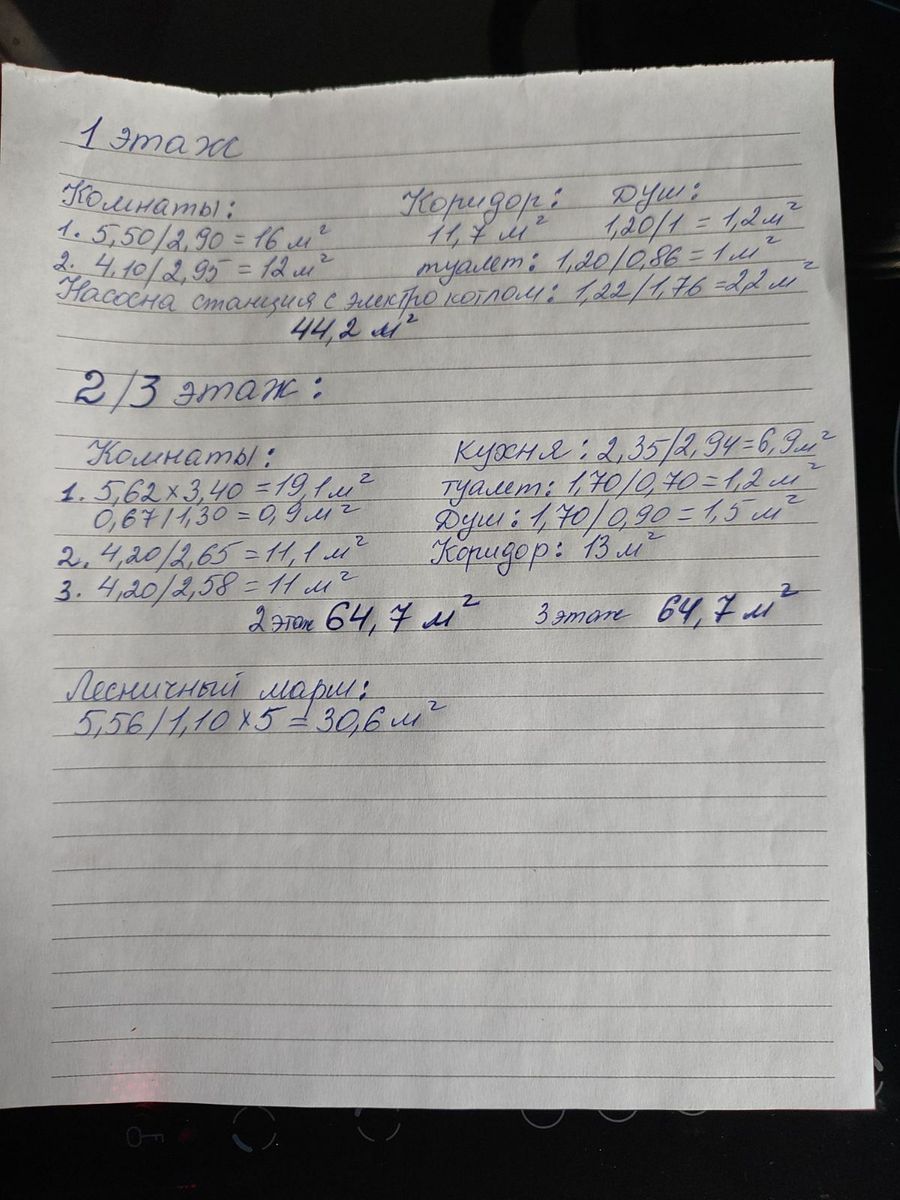 1 этаж
Комнаты: Коридор: Душ:
1. 5,50/2,90 = 16 м² 11,7 м² 1,20/1 = 1,2 м²
2. 4,10/2,95 = 12 м² туалет: 1,20/0,86 = 1 м²
Насосна станция с электро котлом: 1,22/1,76 = 2,2 м²
44,2 м²
2/3 этаж:
Комнаты: кухня: 2,35/2,94 = 6,9 м²
1. 5,62 × 3,40 = 19,1 м² туалет: 1,70/0,70 = 1,2 м²
0,67/1,30 = 0,9 м² Душ: 1,70/0,90 = 1,5 м²
2. 4,20/2,65 = 11,1 м² Коридор: 13 м²
3. 4,20/2,58 = 11 м²
2 этаж 64,7 м² 3 этаж 64,7 м²
Лесничный марш:
5,56/1,10 × 5 = 30,6 м²